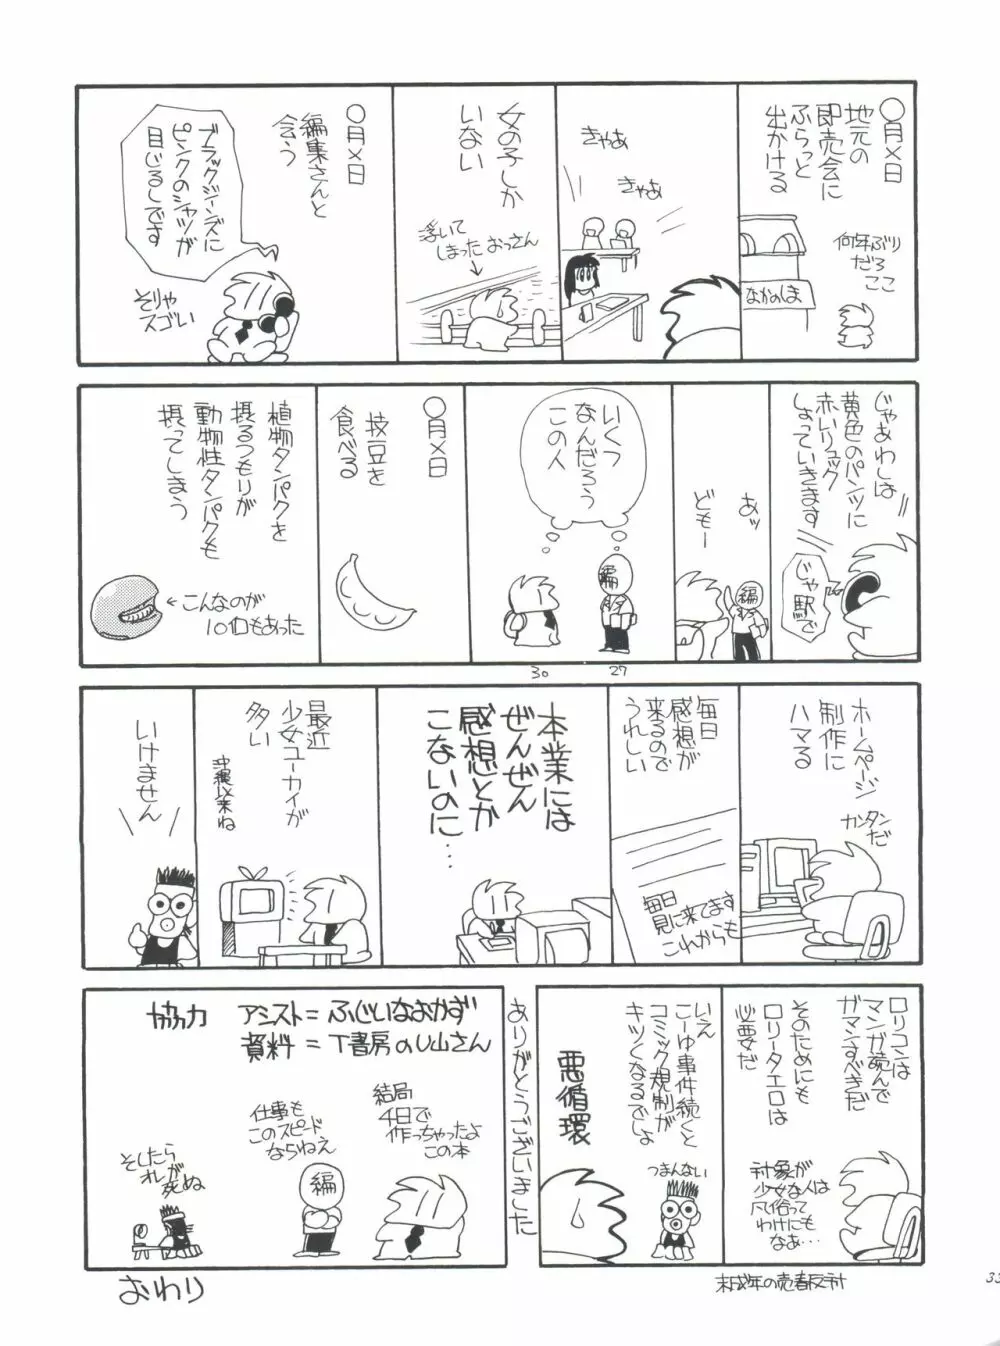 〇月×日
地元の
即売会に
ふらっと
出かける
何年ぶり
だろ
ここ
なかのしま
きゃあ
きゃあ
女の子しか
いない
浮いて
しまったおっさん
〇月×日
編集さんと
会う
ブラックジーンズに
ピンクのシャツが
目じるしです
そりゃ
スゴい
じゃあわしは
黄色のパンツに
赤いリュック
しょっていきます
じゃ駅で
あッ
どもー
編
いくつ
なんだろう
この人
編
30
27
〇月×日
枝豆を
食べる
植物タンパクを
摂るつもりが
動物性タンパクも
摂ってしまう
←こんなのが
10コもあった
ホームページ
制作に
ハマる
カンタン
だ
毎日
感想が
来るので
うれしい
毎日
見に来てます
これからも
本業には
ぜんぜん
感想とか
こないのに…
最近
少女ユーカイが
多い
沖縄以来ね
いけません
ロリコンは
マンガ読んで
ガマンすべきだ
そのためにも
ロリータエロは
必要だ
対象が
少女な人は
風俗って
わけにも
なあ…
いえ
こーゆ事件続くと
コミック規制が
キツくなるでしょ
つまんない
悪循環
未成年の売春反対
ありがとうございました
協力
アシスト=ふじいなおかず
資料=T書房のU山さん
結局
4日で
作っちゃったよ
この本
仕事も
このスピード
ならねえ
編
そしたら
オレが
死ぬ
おわり
33